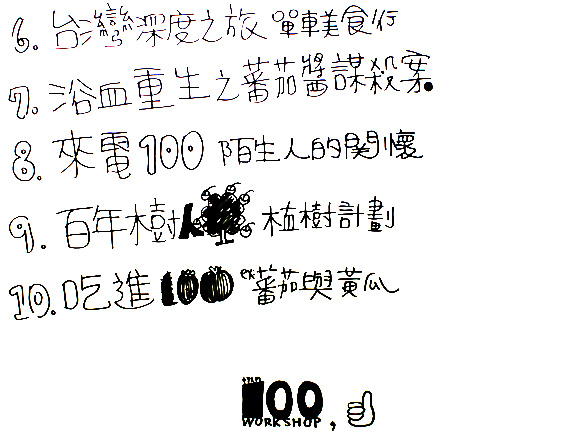 6. 台灣深度之旅 單車美食行
7. 浴血重生之蕃茄醬謀殺案.
8. 來電100 陌生人的關懷
9. 百年樹 植樹計劃
10. 吃進100 ex蕃茄與黃瓜
100
WORKSHOP,